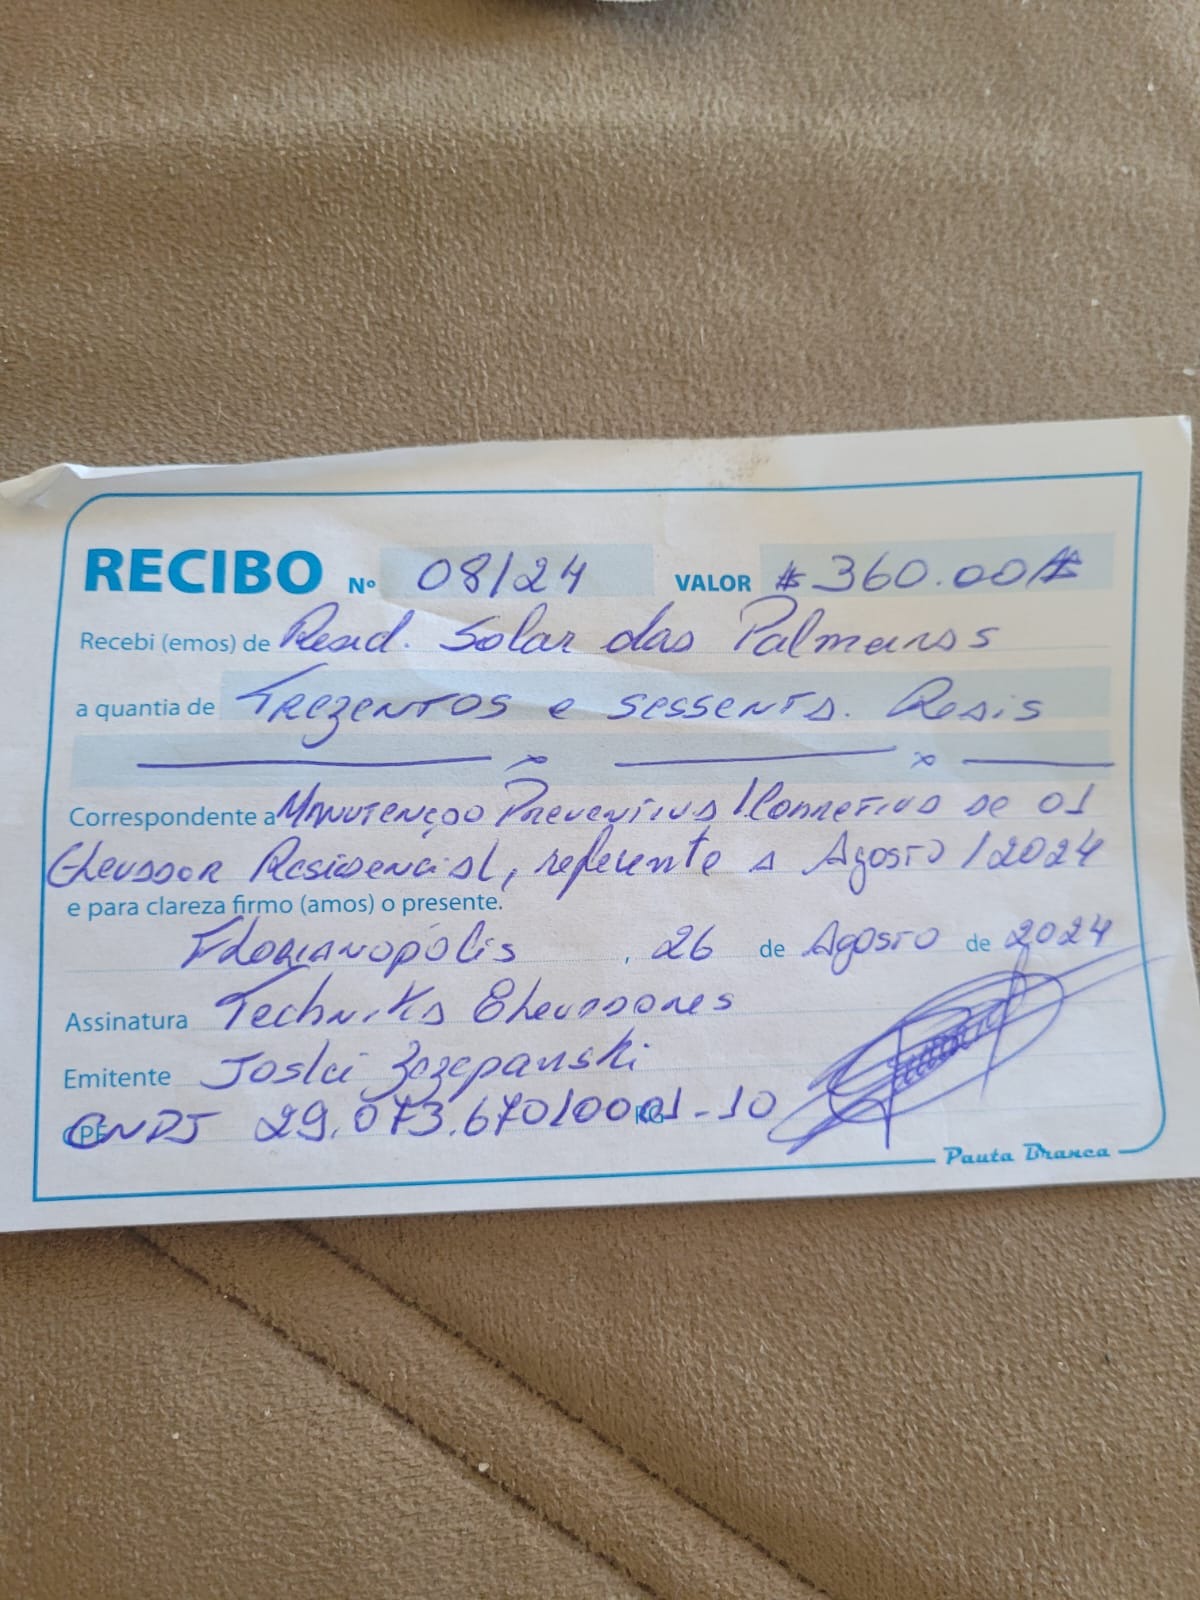 RECIBO Nº 08/24 VALOR $ 360.00 $
Recebi (emos) de Resid. Solar das Palmeiras
a quantia de Trezentos e sessenta. Reais
x x
Correspondente a Manutenção Preventiva/Corretiva de 01
Elevador Residencial, referente a Agosto/2024
e para clareza firmo (amos) o presente.
Florianópolis, 26 de Agosto de 2024
Assinatura Technika Elevadores
Emitente Joslei Zczepanski
CNPJ 29.073.670/0001-10
Pauta Branca